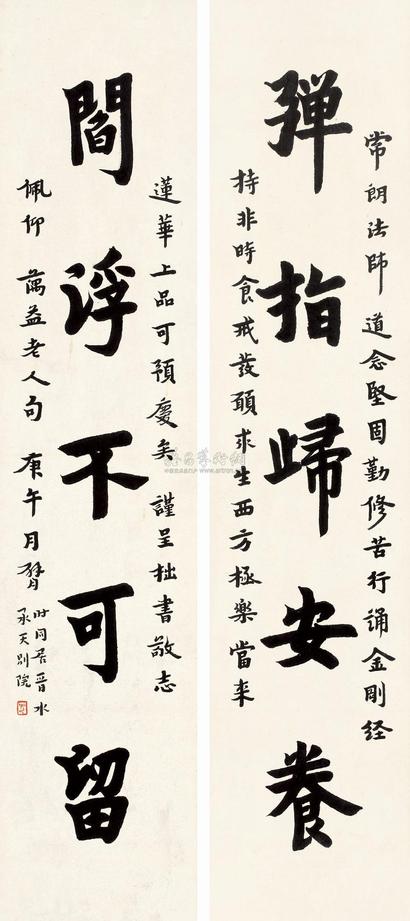 常朗法師道念堅固勤修苦行誦金剛经
彈指歸安養
持非時食戒發願求生西方極樂當来
蓮華上品可預慶矣謹呈拙書敬志
閻浮不可留
佩仰 蕅益老人句 庚午月臂
时同居晋水
承天別院